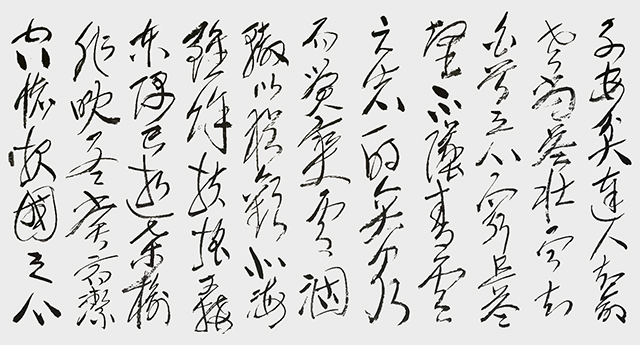 子安貧達人知命
老當益壯寧知
白首之心窮且益
堅不墜青雲
之志酌貪泉
而覺爽處涸
轍以猶歡北海
雖賒扶搖可接
東隅已逝桑榆
非晚孟嘗高潔
空懷報國之心